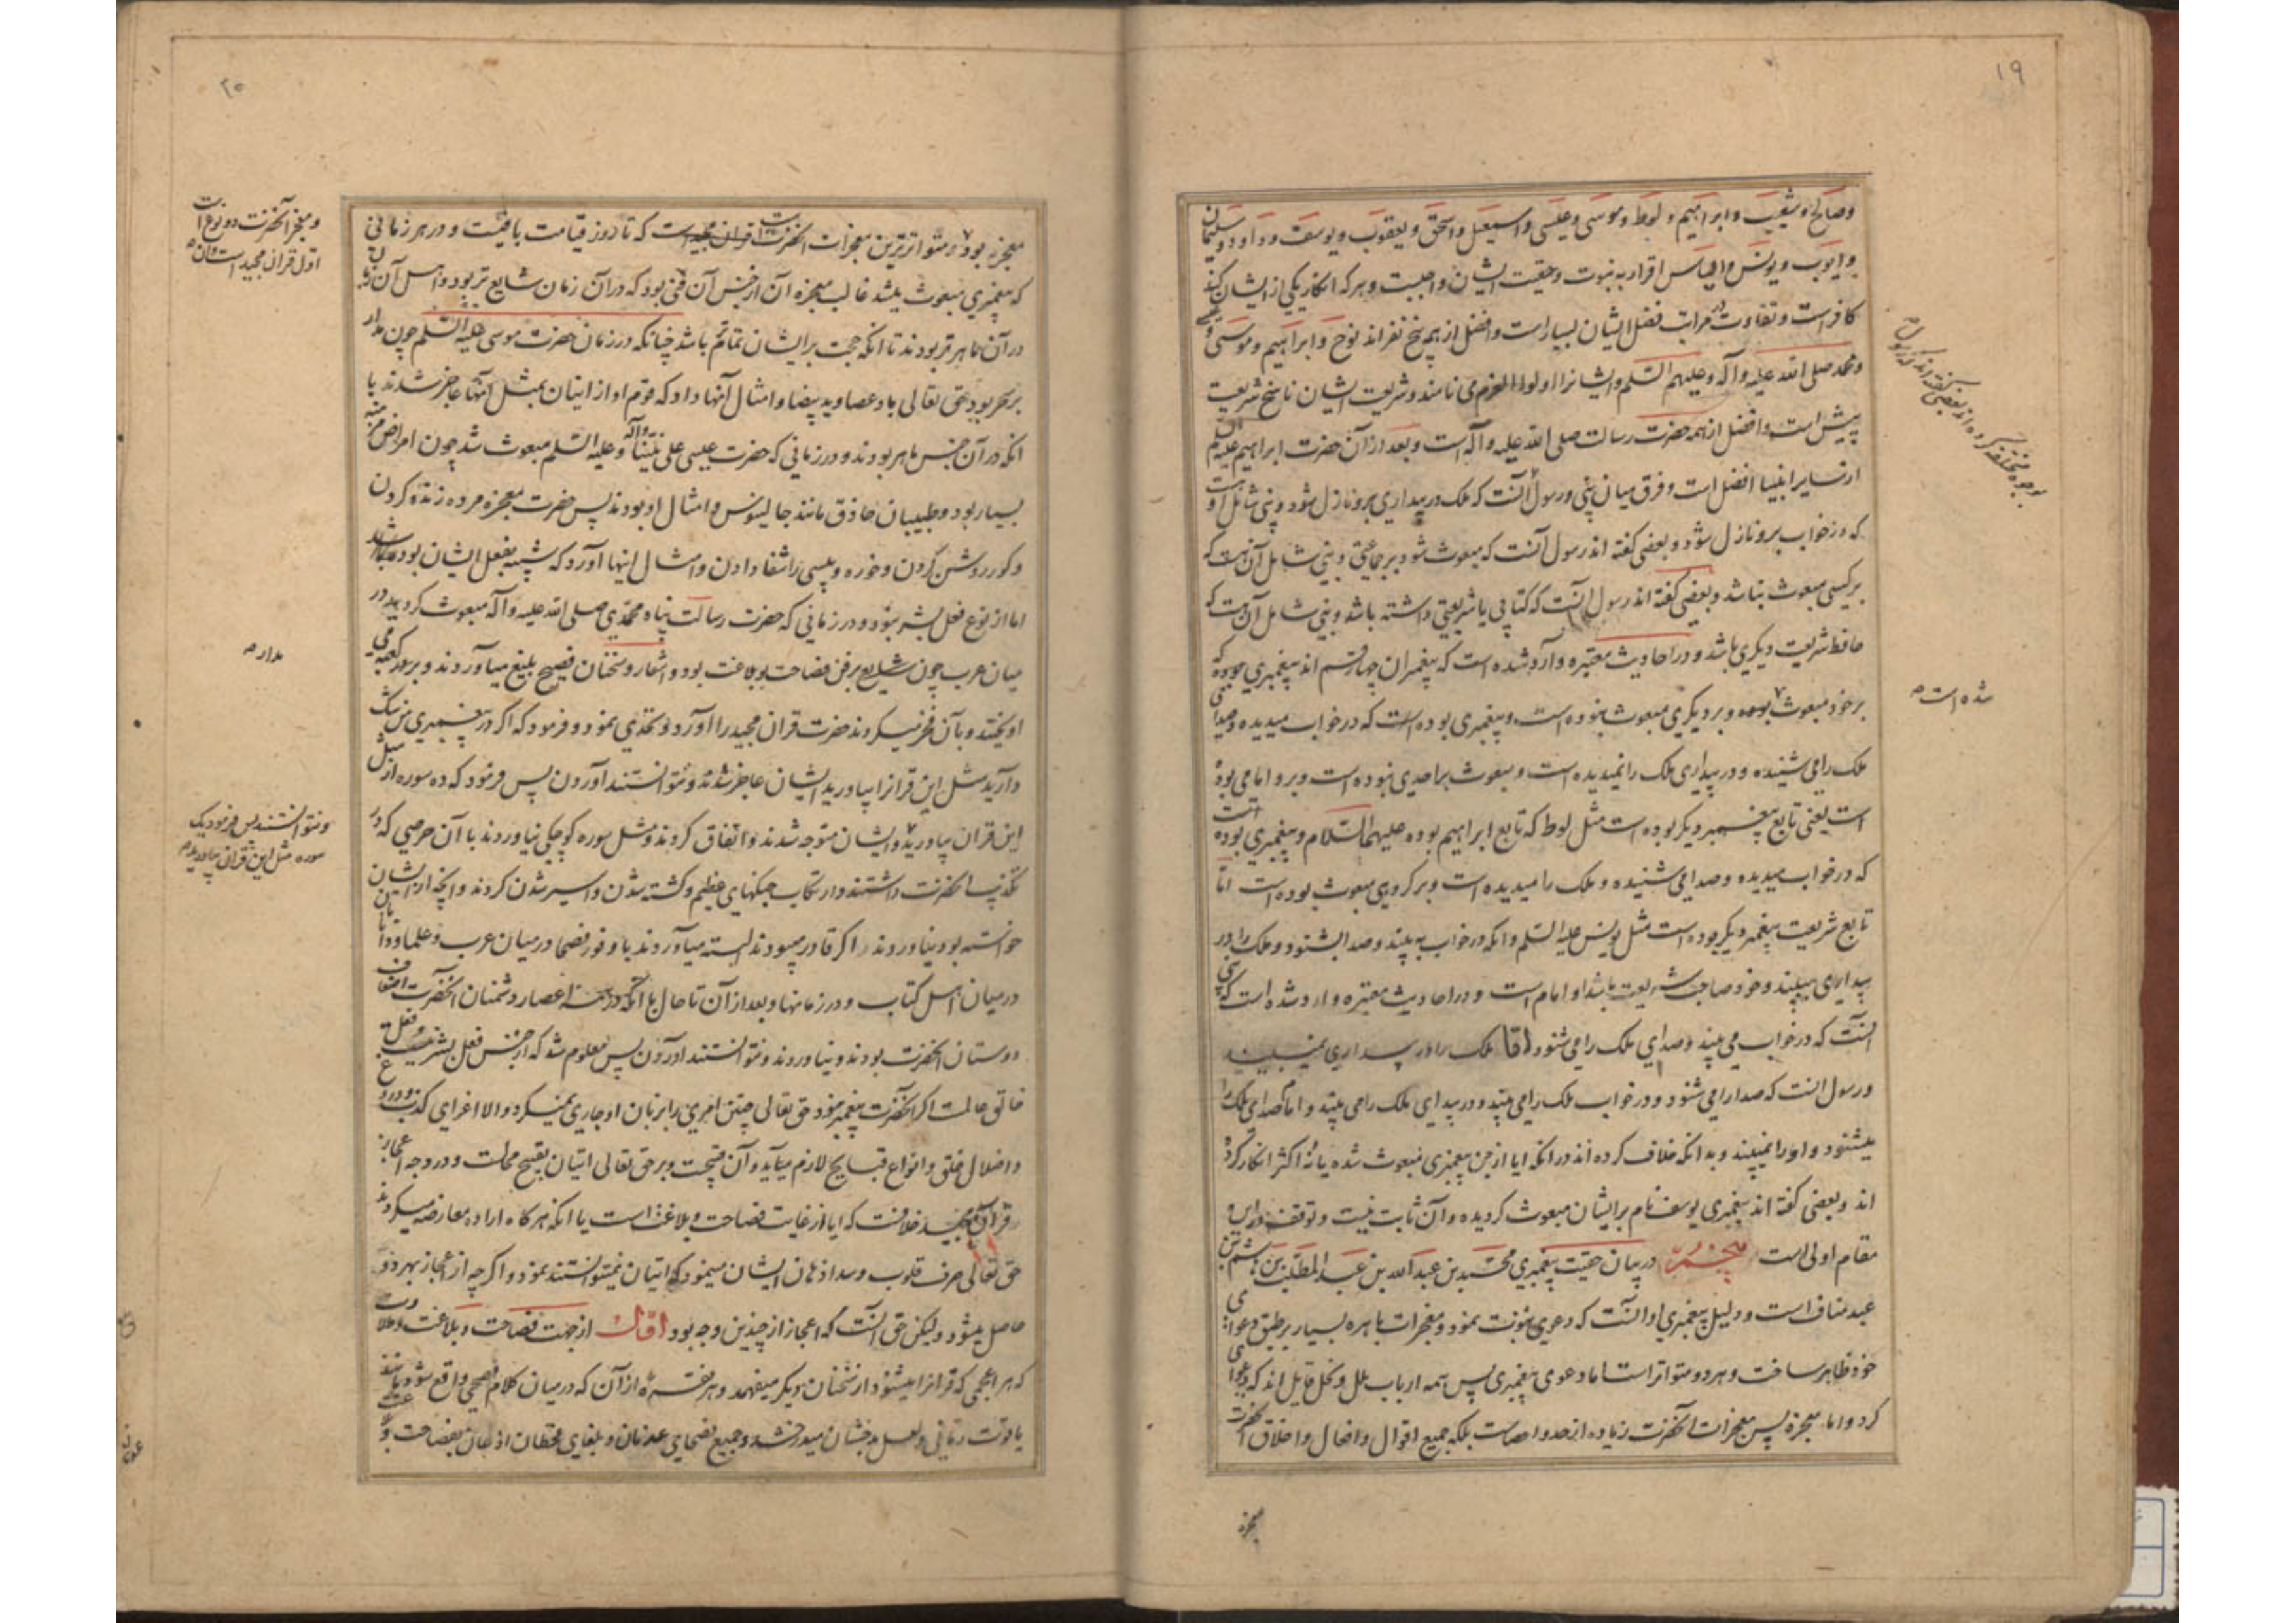 ۱۹
وصالح و شعیب و ابراهیم و لوط و موسی و عیسی و اسمعیل و اسحق و یعقوب و یوسف و داود و سلیمان
و ایوب و یونس و الیاس اقرار به نبوت و حقیت ایشان واجبست و هر که انکار یکی از ایشان کند
کافر است و تفاوت در مراتب فضل ایشان بسیار است و افضل از همه پنج نفراند نوح و ابراهیم و موسی و عیسی
و محمد صلی الله علیه وآله وعلیهم السلم و ایشانرا اولوا العزم می نامند و شریعت ایشان ناسخ شریعت
پیش است و افضل از همه حضرت رسالت صلی الله علیه وآله است و بعد از آن حضرت ابراهیم علیه
از سایر انبیا افضل است و فرق میان نبی و رسول آنست که ملک در بیداری برو نازل شود و نبی شامل اوست
که در خواب برو نازل شود و بعضی گفته اند رسول آنست که مبعوث شود بر جماعتی و نبی شامل آن هست که
بر کسی مبعوث نباشد و بعضی گفته اند رسول آنست که کتابی یا شریعتی داشته باشد و نبی شامل آن هست که
حافظ شریعت دیگری باشد و در احادیث معتبره وارد شده است که پیغمبران چهار قسم اند پیغمبری بوده که
بر خود مبعوث بوده و بر دیگری مبعوث نبوده است و پیغمبری بوده است که در خواب میدیده و صدای
ملک را می شنیده و در بیداری ملک را نمیدیده است و مبعوث بر احدی نبوده است و برو امامی بوده
است یعنی تابع پیغمبر دیگر بوده است مثل لوط که تابع ابراهیم بوده علیهما السلام و پیغمبری بوده است
که در خواب میدیده و صدا می شنیده و ملک را میدیده است و بر گروهی مبعوث بوده است اما
تابع شریعت پیغمبر دیگر بوده است مثل یونس علیه السلم و آنکه در خواب به بیند و صدا بشنود و ملک را در
بیداری ببیند و خود صاحب شریعت باشد او امام است و در احادیث معتبره وارد شده است که نبی
آنست که در خواب می بیند و صدای ملک را می شنود اما ملک را در بیداری نمیبیند
و رسول آنست که صدا را می شنود و در خواب ملک را می بیند و در بیداری ملک را می بیند و امام صدای ملک را
میشنود و او را نمیبیند و بدانکه خلاف کرده اند در آنکه ایا از جن پیغمبری مبعوث شده یا نه اکثر انکار کرده
اند و بعضی گفته اند پیغمبری یوسف نام بر ایشان مبعوث گردیده و آن ثابت نیست و توقف در این
مقام اولی است پنجم در بیان حقیت پیغمبری محمد بن عبدالله بن عبدالمطلب بن هاشم بن
عبد مناف است و دلیل پیغمبری او آنست که دعوی نبوت نمود و معجزات باهره بسیار بر طبق دعوای
خود ظاهر ساخت و هر دو متواتر است اما دعوی پیغمبری پس همه ارباب ملل و نحل قایل اند که دعوا
کرد و اما معجزه پس معجزات آنحضرت زیاده از حد و احصاست بلکه جمیع اقوال و افعال و اخلاق آنحضرت
معجزه
شده است
۲۰
معجزه بود و متواترترین معجزات آنحضرت قران مجید است که تا روز قیامت باقیست و در هر زمانی
که پیغمبری مبعوث میشد غالب معجزه آن از جنس آن فنی بود که در آن زمان شایع تر بود و اهل آن زمان
در آن ماهرتر بودند تا آنکه حجت بر ایشان تمامتر باشد چنانکه در زمان حضرت موسی علیه السلم چون مدار
بر سحر بود حق تعالی باو عصا و ید بیضا و امثال آنها داد که قوم او از اتیان بمثل آنها عاجز شدند با
آنکه در آن جنس ماهر بودند و در زمانی که حضرت عیسی علی نبینا وآله وعلیه السلم مبعوث شد چون امراض مزمنه
بسیار بود و طبیبان حاذق مانند جالینوس و امثال او بودند پس حضرت معجزه مرده زنده کردن
و کور روشن کردن و خوره و پیسی را شفا دادن و امثال اینها آورد که شبیه بفعل ایشان بوده باشد
اما از نوع فعل بشر نبود و در زمانی که حضرت رسالت پناه محمدی صلی الله علیه وآله مبعوث گردید در
میان عرب چون بر فن فصاحت و بلاغت بود و اشعار و سخنان فصیح بلیغ میآوردند و بر در کعبه می
اویختند و بآن فخر میکردند حضرت قران مجید را آورد و تحدی نمود و فرمود که اگر در پیغمبری من شک
دارید مثل این قرانرا بیاورید ایشان عاجز شدند و نتوانستند آوردن پس فرمود که ده سوره از مثل
این قران بیاورید و ایشان متوجه شدند و اتفاق کردند و مثل سوره کوچکی نیاوردند با آن حرصی که در
تکذیب آنحضرت داشتند و ارتکاب جنگهای عظیم و کشته شدن و اسیر شدن کردند و آنچه از ایشان
خواسته بود نیاوردند اگر قادر میبودند البته میآوردند با وفور فصحا در میان عرب و علما و دانایان
در میان اهل کتاب و در زمانها و بعد از آن تا حال با آنکه در همه اعصار دشمنان آنحضرت اضعاف
دوستان آنحضرت بودند و نیاوردند و نتوانستند آوردن پس معلوم شد که از جنس فعل بشر نیست و فعل
خالق عالمست اگر آنحضرت پیغمبر نبود حق تعالی چنین امری را بر زبان او جاری نمیکرد و الا اغرای کذب و دروغ
و اضلال خلق و انواع قبایح لازم میآید و آن قبیحست و بر حق تعالی اتیان بقبیح محالست و در وجه اعجاز
قرآن مجید خلافست که ایا از غایت فصاحت و بلاغت است یا آنکه هرگاه اراده معارضه میکردند
حق تعالی صرف قلوب و سد اذهان ایشان مینمود که اتیان نمیتوانستند نمود و اگر چه از اعجاز بهر دو
حاصل میشود و لیکن حق آنست که اعجاز از چندین وجه بود اول از جهت فصاحت و بلاغت و حلاوت
که هر اعجمی که قرانرا میشنود از سخنان دیگر میفهمد و هر فقره از آن که در میان کلام فصیحی واقع شود مانند
یاقوت رمانی و لعل بدخشان میدرخشد و جمیع فصحای عدنان و بلغای قحطان اذعان بفصاحت و
و معجز آنحضرت دو نوع است
اول قران مجید است و آن
مدار
و نتوانستند پس فرمود یک
سوره مثل این قران بیاورید